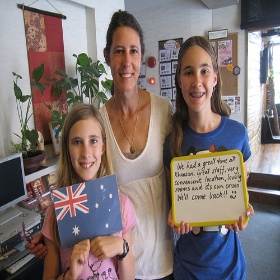 We had a great time at
great staff, very
convenient location, lovely
rooms and its own prison
We'll come back!!